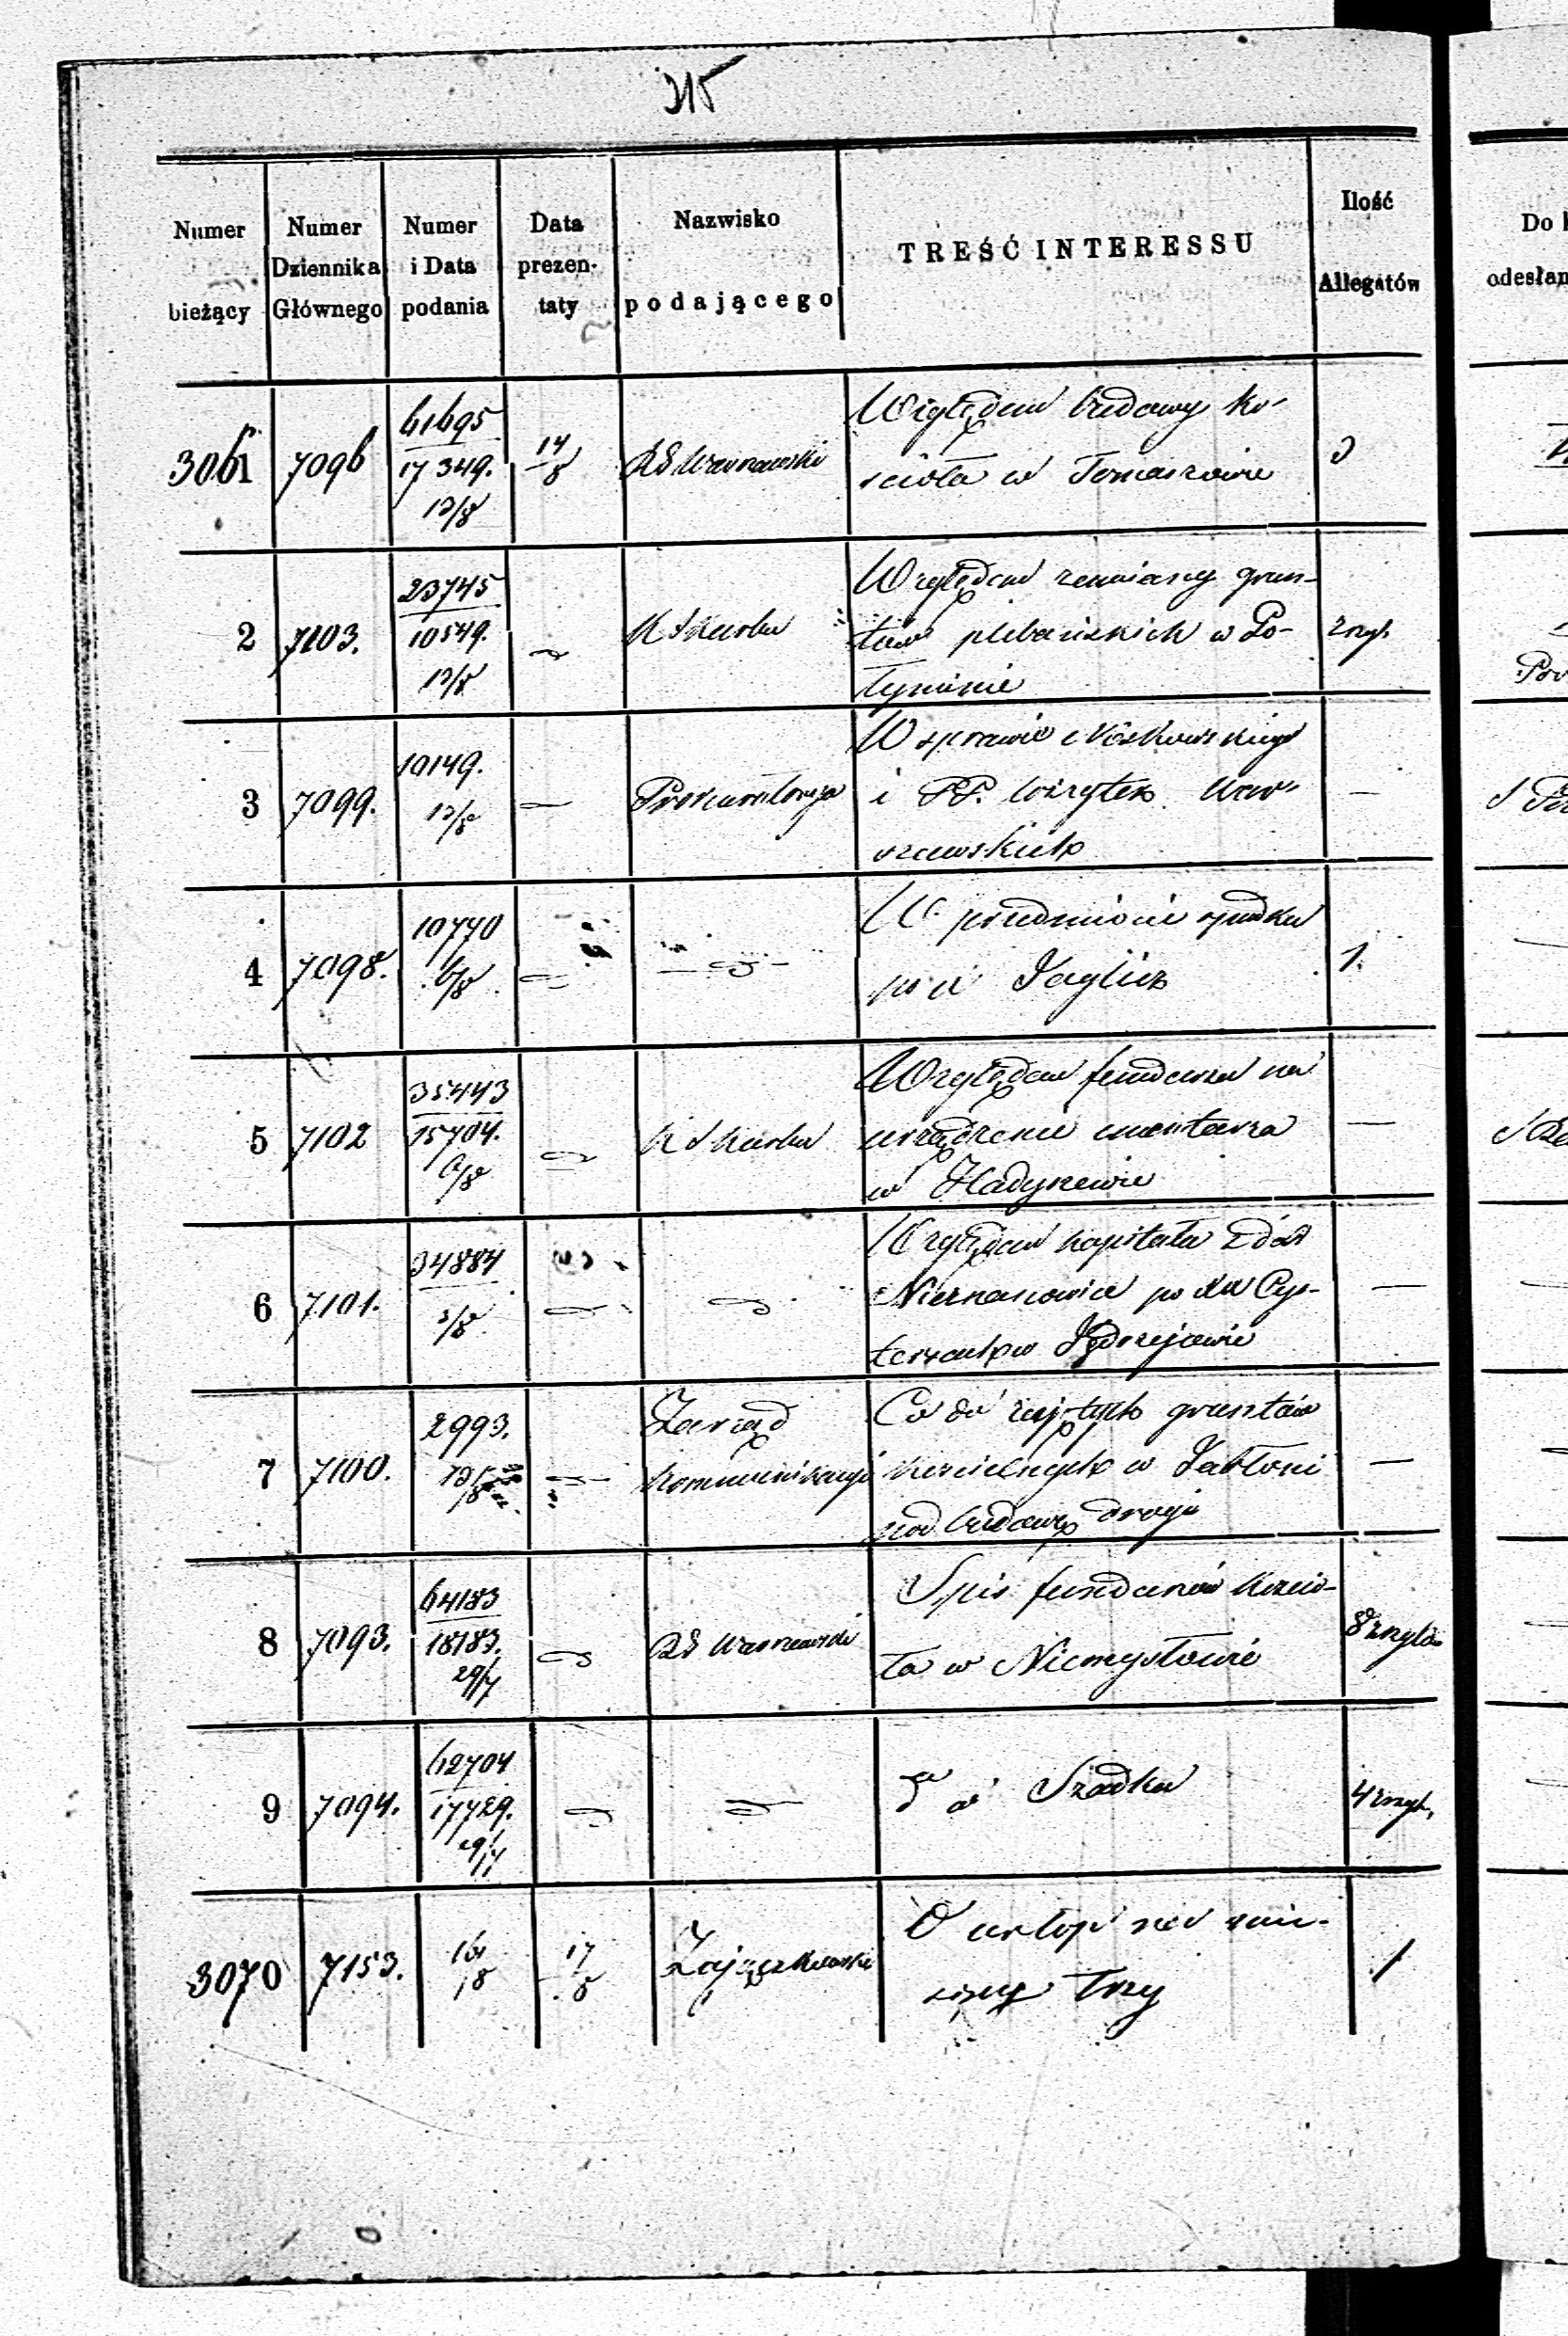 315
Numer bieżący
Numer Dziennika Głównego
Numer i Data podania
Data prezen- taty
Nazwisko podającego
TREŚĆ INTERESSU
Ilość Allegatów
Do
odesłan
3061 7096 61695 17349. 13/8 14/8 RG Warszawski
Względem budowy ko-
ścioła w Tomaszowie
3
2 7103. 23745 10549. 13/8 K Skarbu
Względem zamiany grun-
tów plebańskich w
2 zszyt.
3 7099. 10149. 13/8 — Prokuratorya
W sprawie Noskowskiego
i PP. Wizytek War-
szawskich
—
4 7098. 10770 6/8
W przedmiocie spadku
po
1.
5 7102 35443 15704. 6/8 K Skarbu
Względem funduszu na
urządzenie cmentarza
w Hadynowie
—
6 7101. 34884 3/8
Względem kapitału z dóbr
po XX Cys-
tersach w Jędrzejowie
—
7 7100. 2993. 13/8 Zarząd
Kommunikacyi
Co do zajętych gruntów
kościelnych w Jabłoni
pod budowę drogi
—
8 7093. 64183 18183. 29/7 RG Warszawski
Spis funduszów kościo-
ła w Niemysłowie
8 zszytów
9 7094. 62704 17729. 29/7
do w Szadku
4 zszyt.
3070 7153. 16/8 17/8 Zajączkowski
O urlop na mie-
sięcy trzy
1